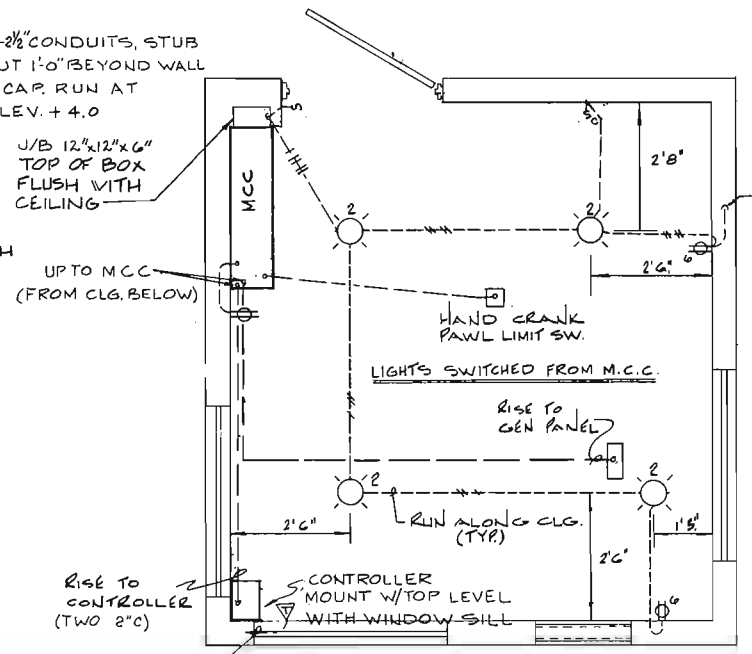 -2½" CONDUITS, STUB
UT 1'-0" BEYOND WALL
CAP. RUN AT
LEV. + 4.0
J/B 12"x12"x6"
TOP OF BOX
FLUSH WITH
CEILING
H
UP TO MCC
(FROM CLG. BELOW)
MCC
S
2
2
2'8"
6
2'6"
HAND CRANK
PAWL LIMIT SW.
LIGHTS SWITCHED FROM M.C.C.
RISE TO
GEN PANEL
2
2
2'6"
RUN ALONG CLG.
(TYP.)
2'6"
1'5"
6
RISE TO
CONTROLLER
(TWO 2"C)
CONTROLLER
MOUNT W/TOP LEVEL
WITH WINDOW SILL
T